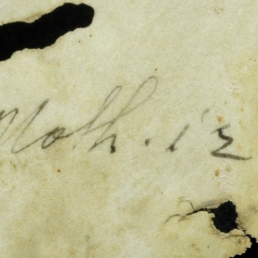 Moth. 12